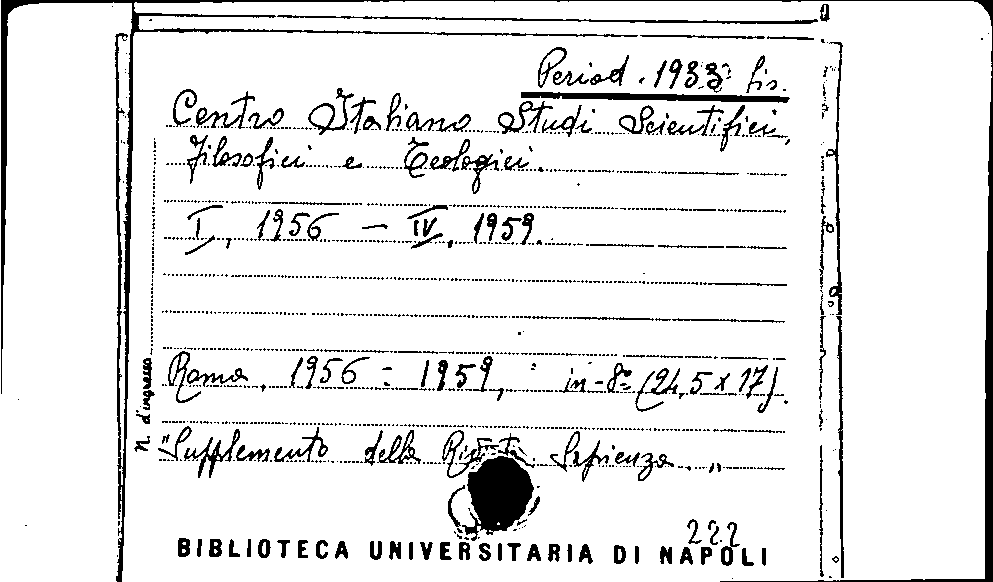 Period. 1933 bis.
Centro Italiano Studi Scientifici,
Filosofici e Teologici.
I, 1956 — IV, 1959.
Roma, 1956 - 1959, in-8º (24,5 x 17).
"Supplemento della Sapienza."
N. d'ingresso
222
BIBLIOTECA UNIVERSITARIA DI NAPOLI